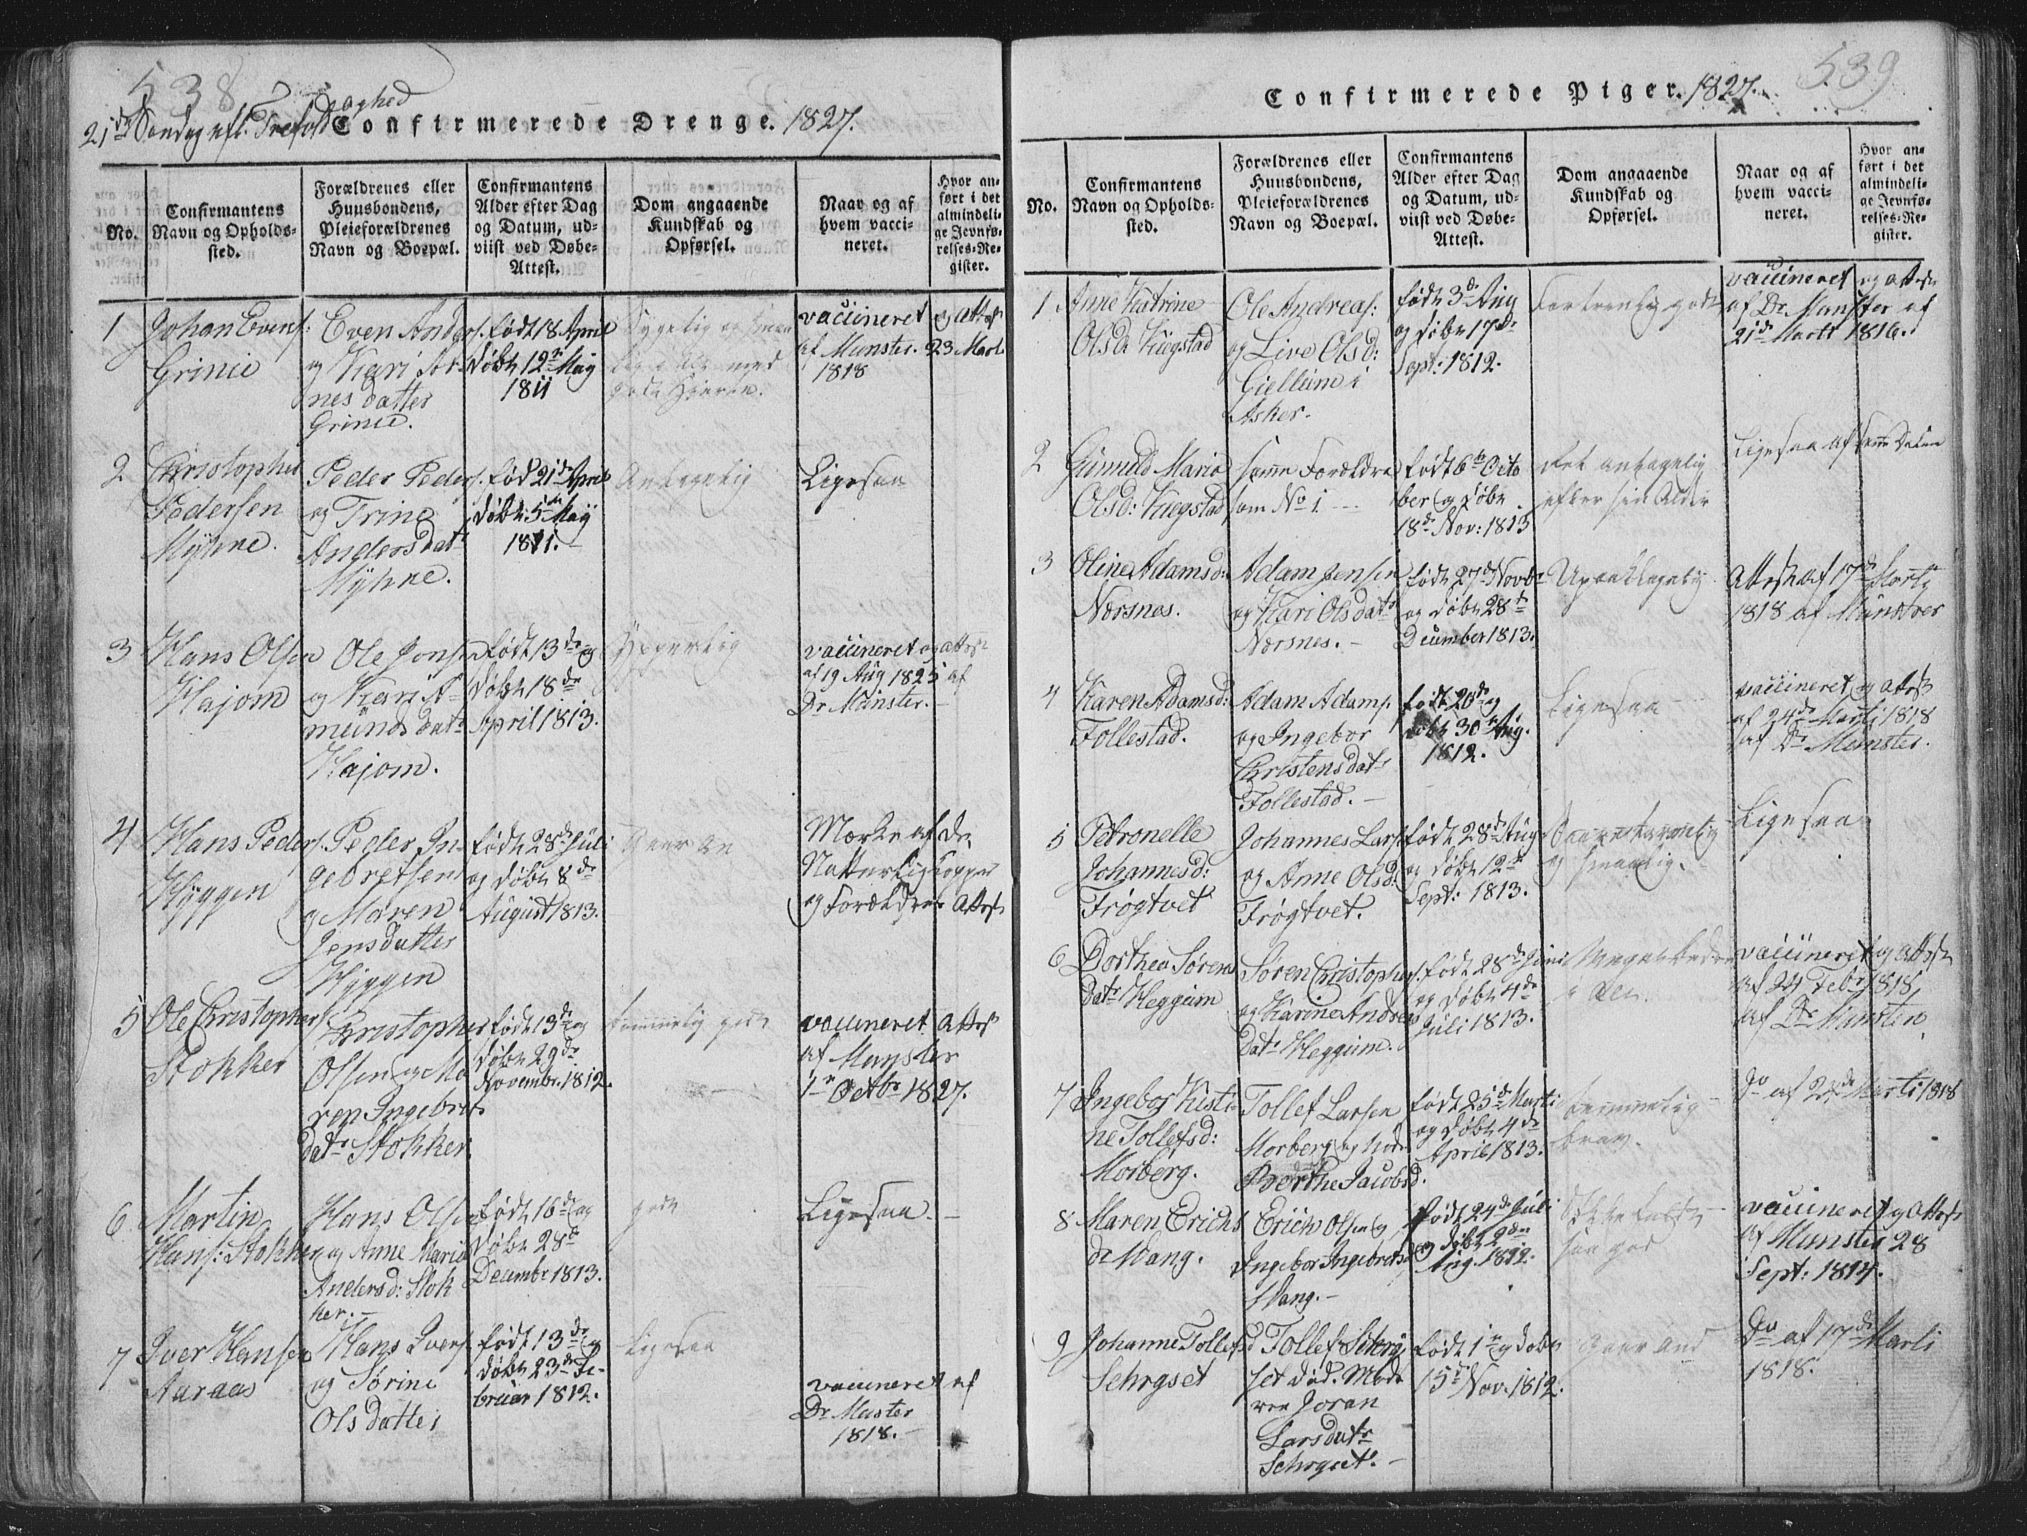 538
21de Søndag eft. Trefoldighed
Confirmerede Drenge. 1827.
No.
Confirmantens
Navn og Opholds-
sted.
Forældrenes eller
Huusbondens,
Pleieforældrenes
Navn og Boepæl.
Confirmantens
Alder efter Dag
og Datum, ud-
viist ved Døbe-
Attest.
Dom angaaende
Kundskab og
Opførsel.
Naar og af
hvem vacci-
neret.
Hvor an-
ført i det
almindeli-
ge Jevnfø-
relses-Re-
gister.
1
Johan Evens:
Grinie
Even Anders.
og Kari Ar-
nesdatter
Grinie.
født 18 April
døbt 12te May
1811
vaccineret og Attest
af Munster. 23 Marts
1818
2
Christopher
Pedersen
Myhre.
Peder Peders.
og Trine
Andersdatr
Myhre.
fød 21de April
døbt 5te May
1811.
Antagelig
Ligesaa
3
Hans Olsen
Hajom
Ole Jonsen
og Kari A-
mundsdatr
Hajom.
født 13de og
døbt 18de
April 1813.
vaccineret og attest
af 19 Aug 1825 af
Dr Munster.
4
Hans Peders.
Hyggen
Peder In-
gebretsen
og Maren
Jensdatter
Hyggen
født 28de Juli
og døbt 8de
August 1813.
Mærke af de
Natterlig Kopper
og Forældres Attest
5
Ole Christophers.
Stokker
Christopher
Olsen og Ma
ren Ingebres
datr Stokker.
født 13de og
døbt 29de
Novembr. 1812.
temmelig godt
vaccineret Attest
af Munster
1te Octbr 1827.
6
Martin
Hans: Stokker
Hans Olsen
og Anne Maria
Andersd: Stok
ker.
født 16de og
døbt 28de
Decembr 1813.
godt
Ligesaa
7
Iver Hansen
Aaraas
Hans Ivers.
og Sørine
Olsdatter
født 13de og
døbt 23de Fe-
bruar 1812.
Ligesaa
vaccineret af
Dr Muster
1818.
539
Confirmerede Piger. 1827.
No.
Confirmantens
Navn og Opholds-
sted.
Forældrenes eller
Huusbondens,
Pleieforældrenes
Navn og Boepæl.
Confirmantens
Alder efter Dag
og Datum, ud-
viist ved Døbe-
Attest.
Dom angaaende
Kundskab og
Opførsel.
Naar og af
hvem vacci-
neret.
Hvor an-
ført i det
almindeli-
ge Jevnfø-
relses-Re-
gister.
1
Anne Katrine
Olsdr Kiegstad
Ole Andreas:
og Live Olsd:
Giellum i
Asker.
født 3de Aug
og døbt 17de
Sept: 1812.
Fortrinlig godt
vaccineret og attest
af Dr. Munster af
21de Marti 1816.
2
Gunild Maria
Olsd: Kiegstad
samme Forældre
som No 1
født 6te Octo
ber og døbt
18de Nov: 1813
Ret antagelig
efter sin Alder
Ligesaa af samme Datum
3
Oline Adamsd:
Nærsnes.
Adam Jensen
og Kari Olsdatr
Nærsnes.
født 27de Novbr
og døbt 28de
December 1813.
Upaaklagelig
Attest af 17de Marty
1818 af Munster
4
Karen Adamsd:
Follestad.
Adam Adams.
og Ingebor
Christensdatr
Follestad.
født 20de og
døbt 30te Aug.
1812.
Ligesaa
vaccineret og attest
af 24de Marti 1818
af Dr Munster.
5
Petronelle
Johannesd:
Frøgtvet
Johannes Lars.
og Anne Olsd:
Frøgtvet.
født 28de Aug
og døbt 12te
Sept: 1813.
Ligesaa
6
Dorthea Sørens
datr Heggum
Søren Christophers.
og Karine Andrea
datr Heggum.
født 28de Juni
og døbt 4de
Juli 1813.
vaccineret og attest
af 24 Febr 1818
af Dr Munster.
7
Ingebor Kisti
ne Tollefsd:
Morberg.
Tollef Larsen
Morberg og
Berthe Jacobsd.
født 25de Marti
og døbt 4de
April 1813.
temmelig
brav.
Do af 24de Marti 1818
8
Maren Erichs
dr Wang.
Erich Olsen og
Ingebor Ingebretsd
Wang.
født 24de Juli
og døbt 2den
Aug. 1812.
vaccineret og Attest
af Munster 28
Sept: 1814.
9
Johanne Tollefsd
Sehrgset
Tollef Sehrg
set død. Mode
ren Joran
Larsdatr
Sehrgset.
født 1te og døbt
15de Nov. 1812.
Gaar and
Do af 17de Marti
1818.